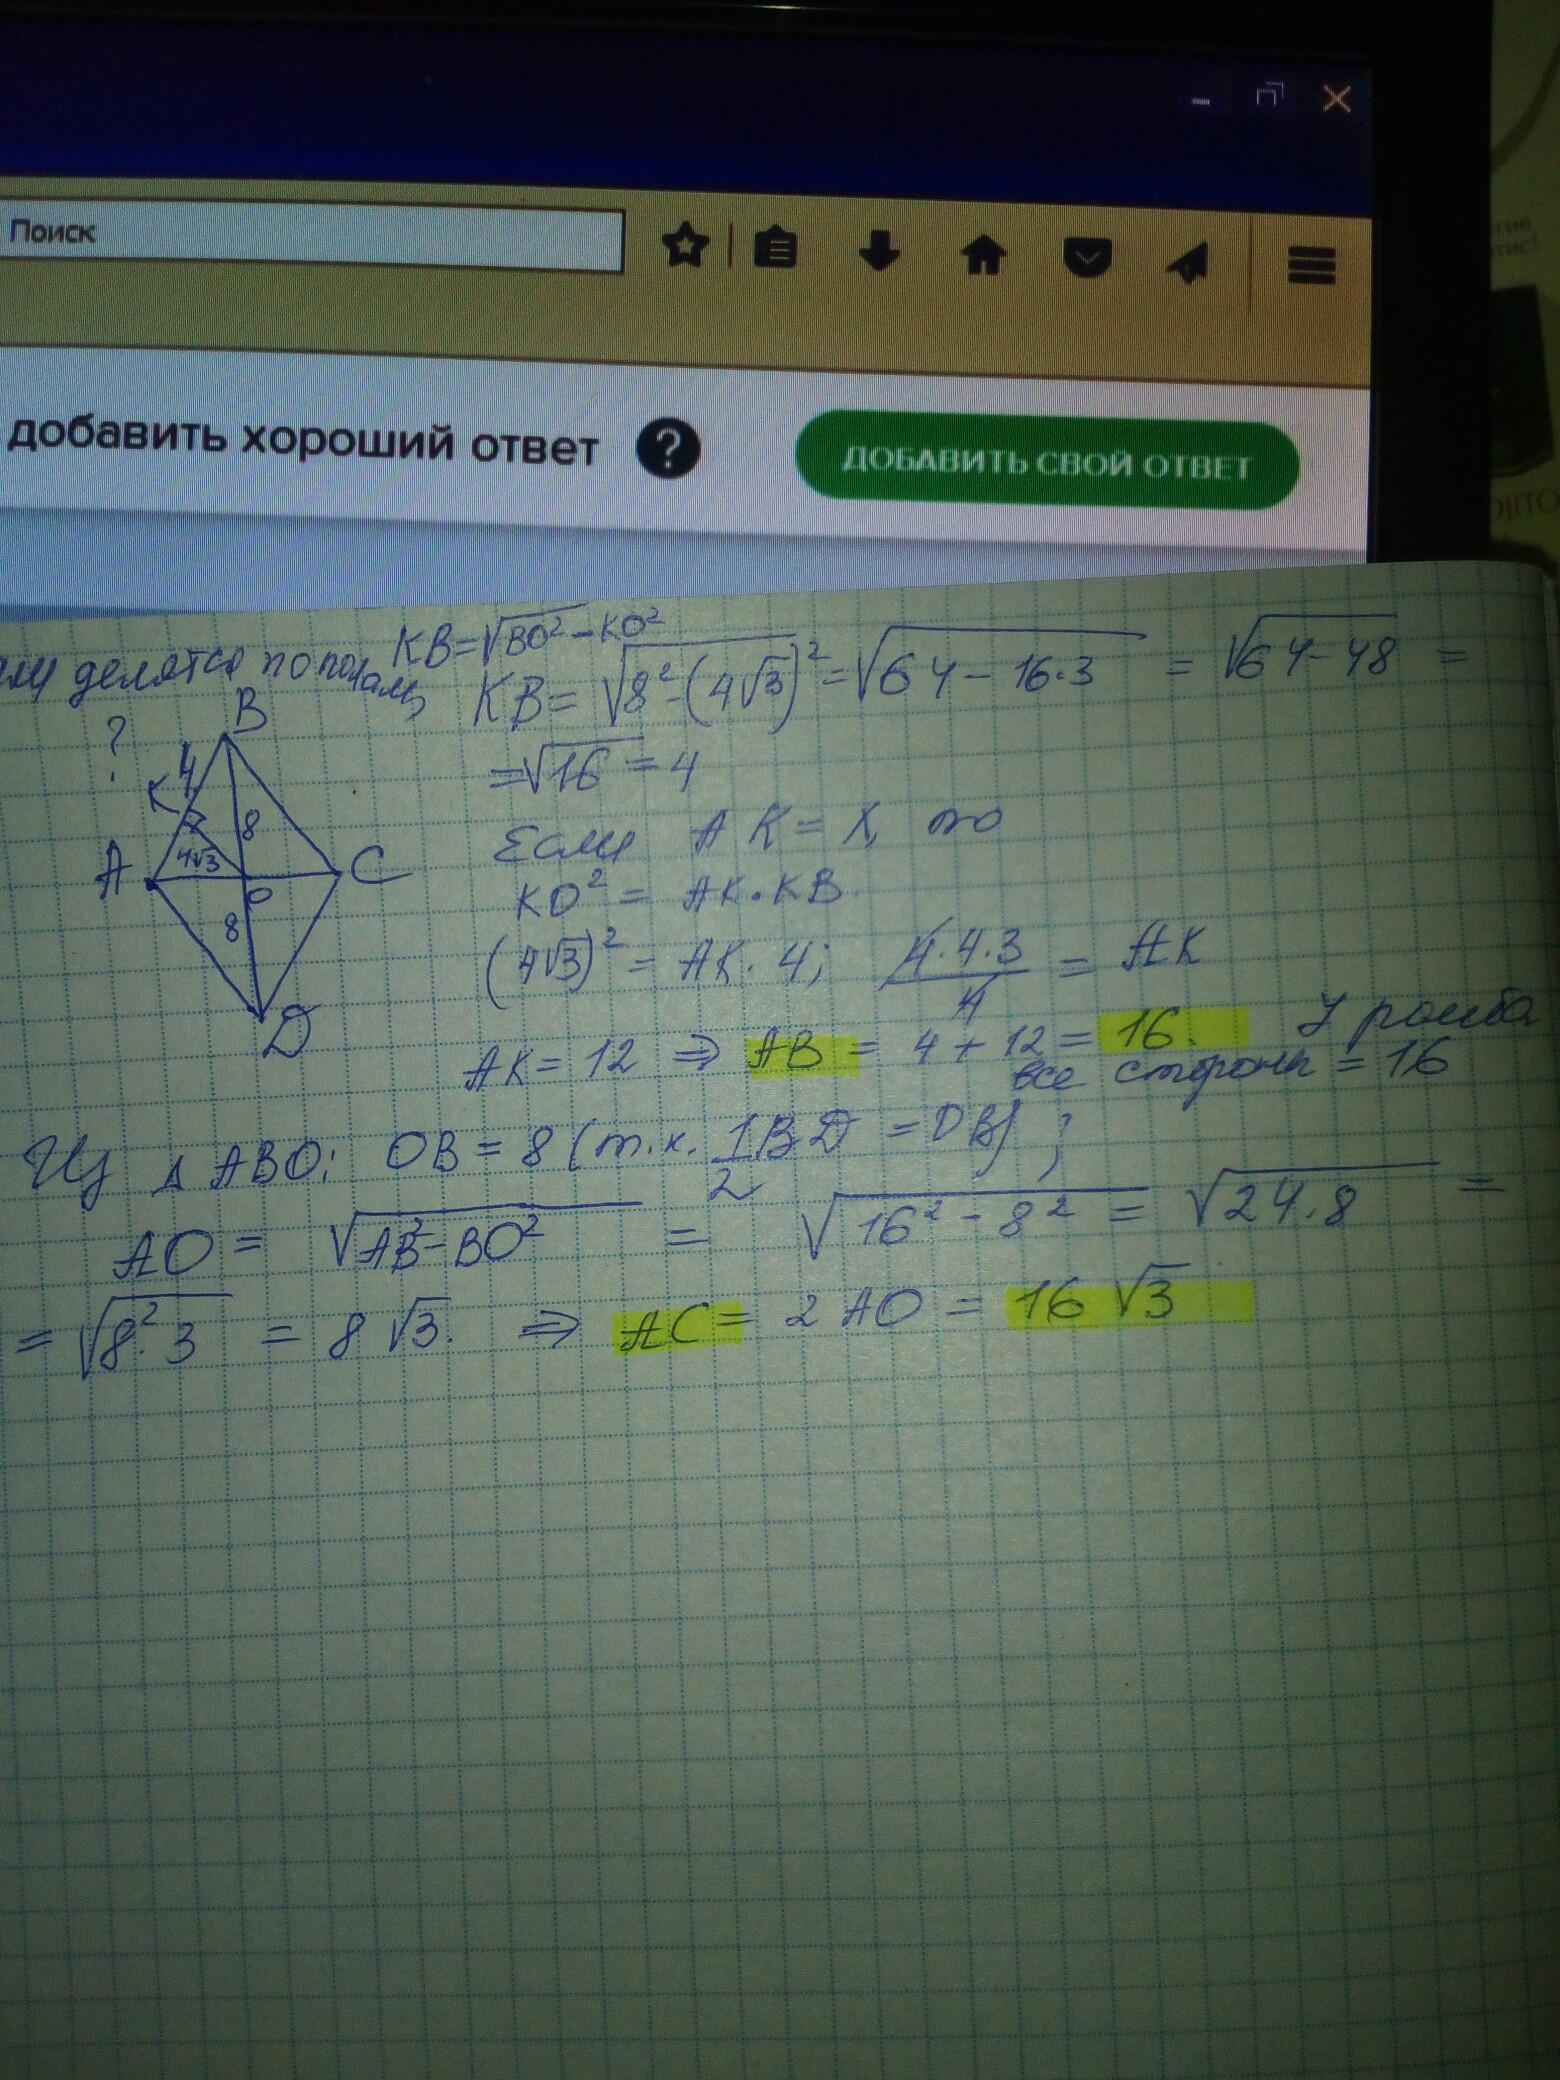 Поиск
добавить хороший ответ ?
ДОБАВИТЬ СВОЙ ОТВЕТ
KB=√BO²-KO²
делятся пополам,
KB= √8²-(4√3)² =√64-16·3 = √64-48 =
=√16 = 4
?
B
4
K
8
4√3
A
C
O
8
D
Если AK=X, то
KO² = AK·KB
(4√3)² = AK·4; 4·4·3/4 = AK
AK=12 ⇒ AB = 4+12=16. У ромба
все стороны =16
Из Δ ABO: OB=8 (т.к. 1/2 BD =OB);
AO = √AB²-BO² = √16²-8² = √24·8 =
= √8²·3 = 8√3. ⇒ AC= 2AO = 16√3